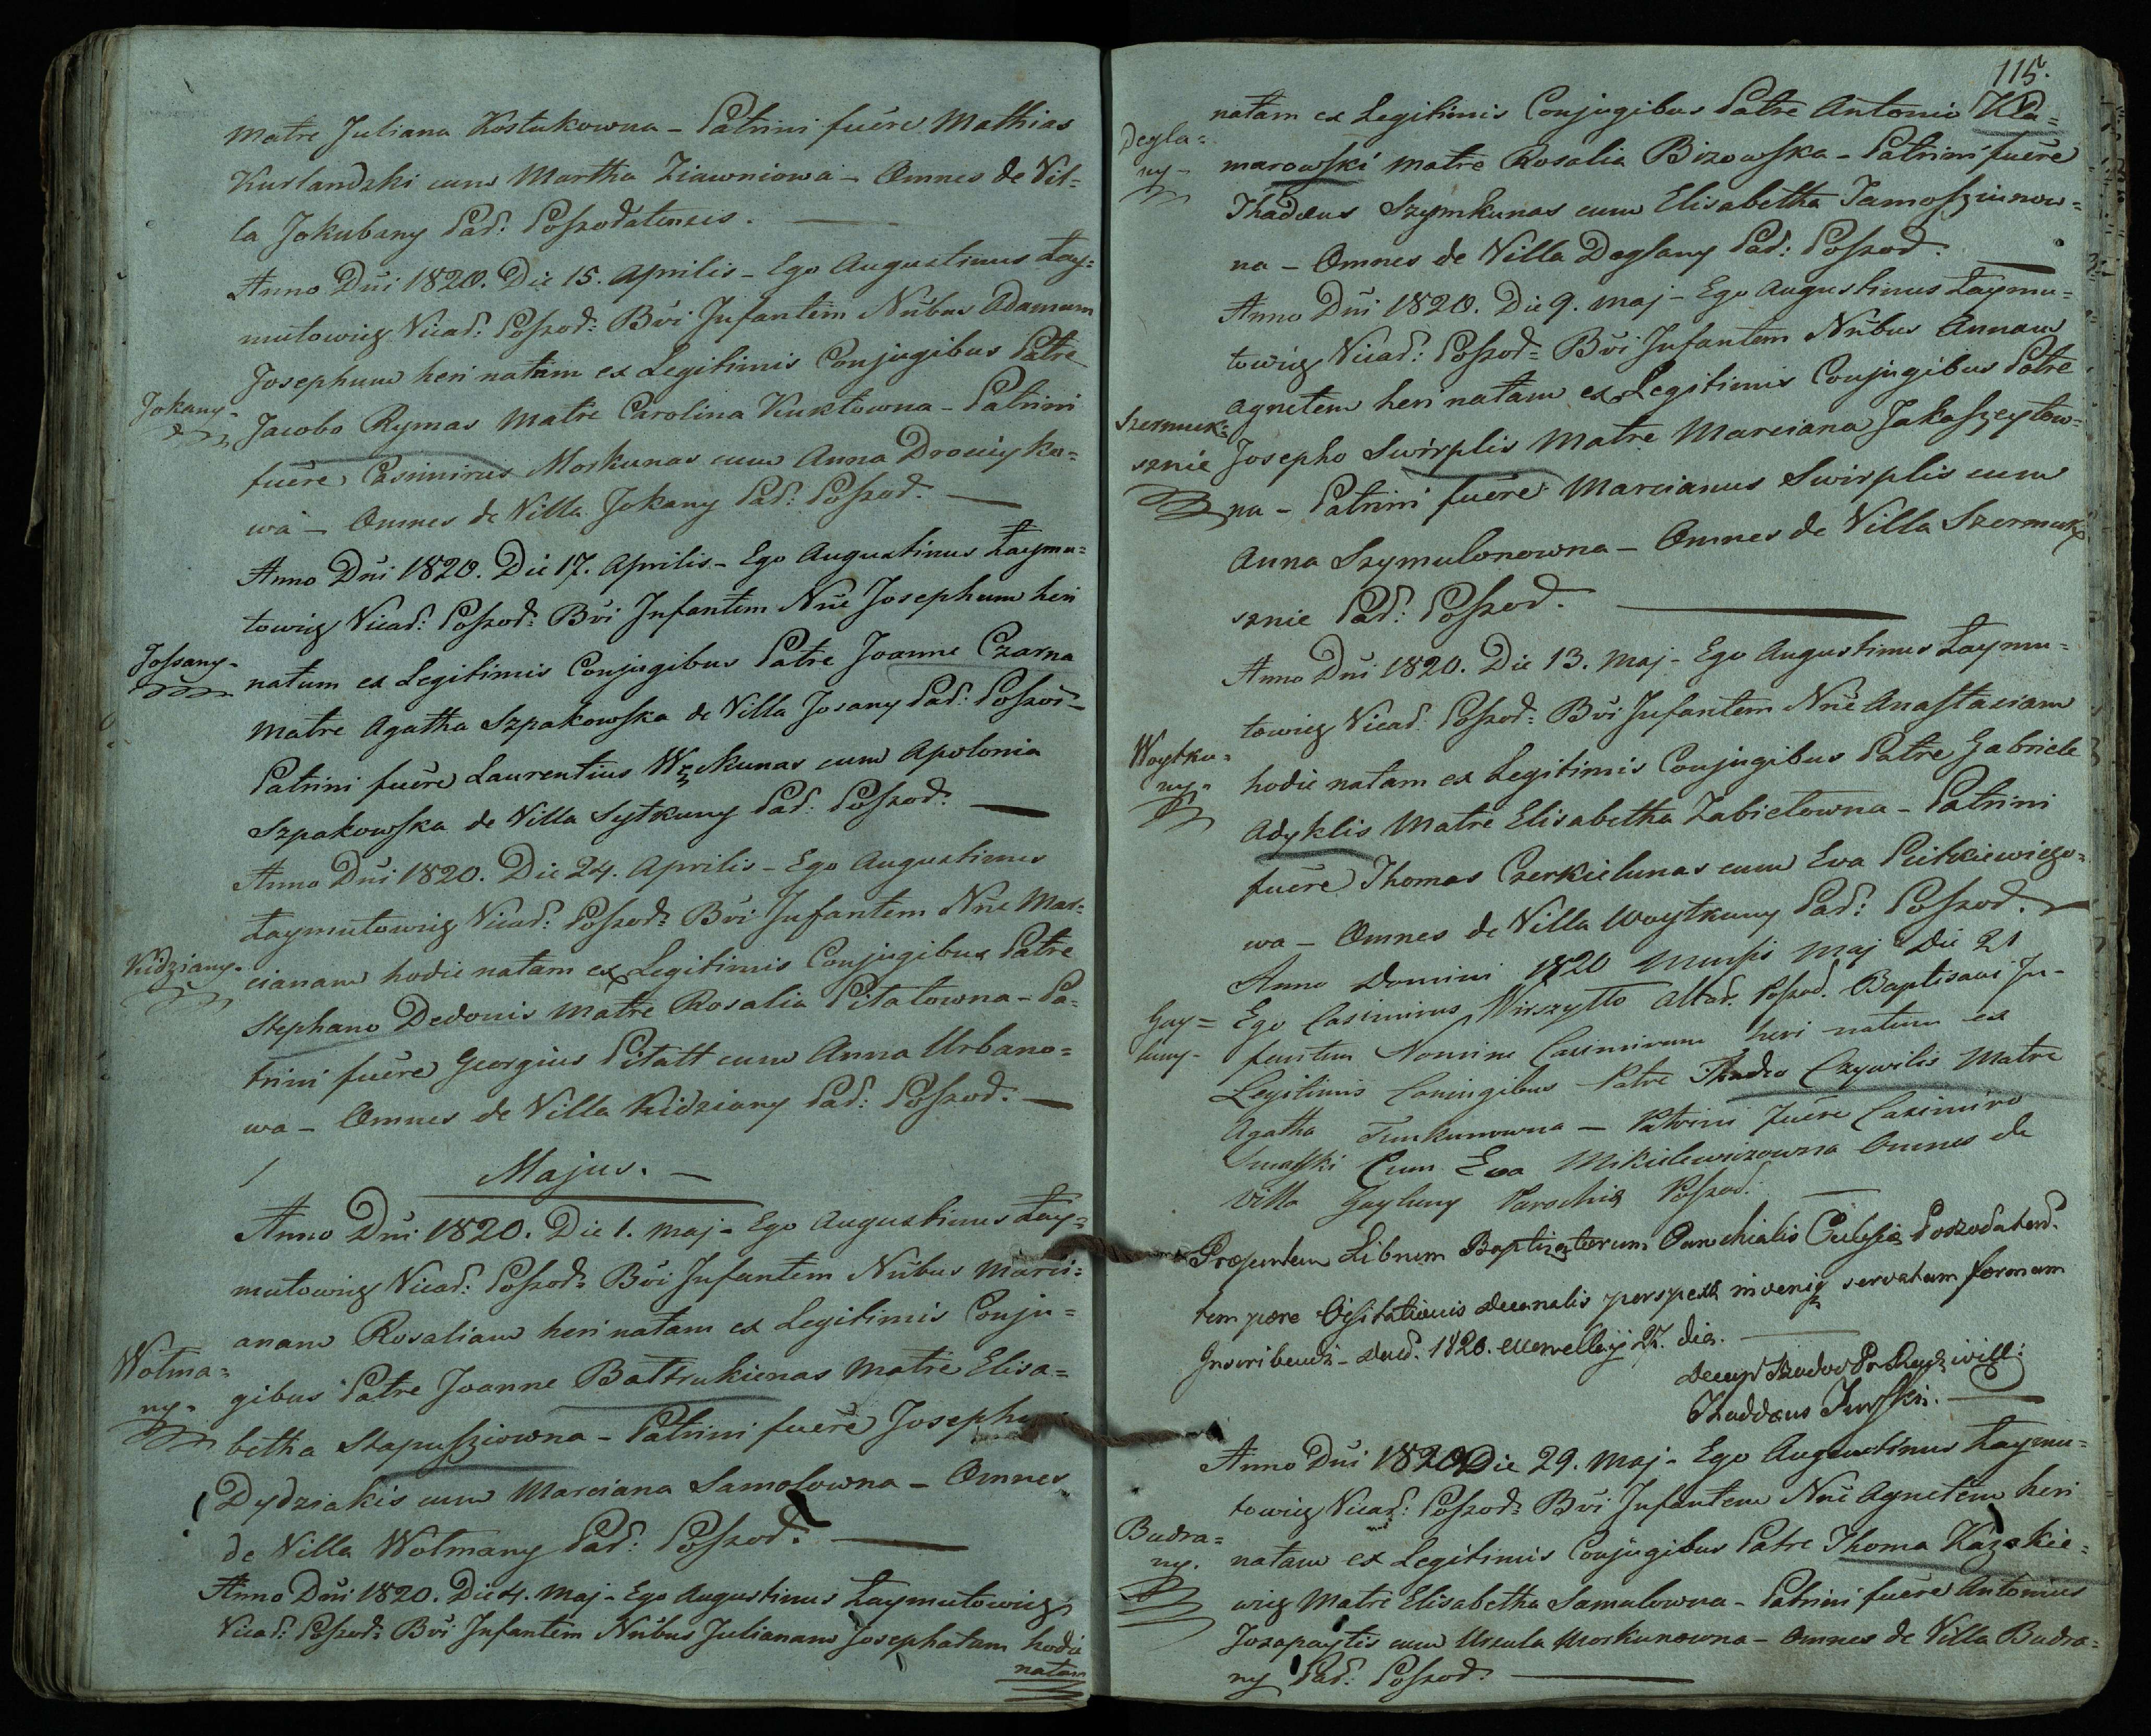 Matre Juliana Kostukowna – Patrini fuere Mathias
Kurlandzki cum Martha Ziawniowa – Omnes de Vil=
la Jokubany Par: Poszodatensis.
Anno Dni 1820. Die 15. Aprilis – Ego Augustinus Łay=
mutowicz Vicar: Poszod: Bvi Infantem Nnbus Adamum
Josephum heri natum ex Legitimis Conjugibus Patre
Jokany –
Jacobo Rymas Matre Carolina Kuktowna – Patrini
fuere Casimirus Morkunas cum Anna Drouciyko=
wa – Omnes de Villa Jokany Par: Poszod.
Anno Dni 1820. Die 17. Aprilis – Ego Augustinus Łaymu=
towicz Vicar: Poszod: Bvi Infantem Nne Josephum heri
Jossany –
natum ex Legitimis Conjugibus Patre Joanne Czarna
Matre Agatha Szpakowska de Villa Josany Par: Poszod –
Patrini fuere Laurentius Węckunas cum Apolonia
Szpakowska de Villa Sytkuny Par: Poszod:
Anno Dni 1820. Die 24. Aprilis – Ego Augustinus
Łaymutowicz Vicar: Poszod: Bvi Infantem Nne Mar=
Kidziany –
cianam hodie natam ex Legitimis Conjugibus Patre
Stephano Dedonis Matre Rosalia Pitatowna – Pa=
trini fuere Georgius Pitatt cum Anna Urbano=
wa – Omnes de Villa Kidziany Par: Poszod. –
Majus. –
Anno Dni 1820. Die 1. Maj – Ego Augustinus Łay=
mutowicz Vicar: Poszod: Bvi Infantem Nnbus Marci=
anam Rosaliam heri natam ex Legitimis Conju=
Wolma=
ny –
gibus Patre Joanne Battrukienas Matre Elisa=
betha Stapusziowna – Patrini fuere Josephus
Dydziakis cum Marciana Samolowna – Omnes
de Villa Wolmany Par: Poszod:
Anno Dni 1820. Die 4. Maj – Ego Augustinus Łaymutowicz
Vicar: Poszod: Bvi Infantem Nnbus Julianam Josephatam hodie
natam
115.
natam ex Legitimis Conjugibus Patre Antonio Kla=
Degla=
ny –
marowski Matre Rosalia Bizowska – Patrini fuere
Thadæus Szymkunas cum Elisabetha Jamosziunow=
na – Omnes de Villa Deglany Par: Poszod.
Anno Dni 1820. Die 9. Maj – Ego Augustinus Łaymu=
towicz Vicar: Poszod: Bvi Infantem Nnbus Annam
Agnetem heri natam ex Legitimis Conjugibus Patre
Szermuk=
sznie
Josepho Swirplis Matre Marciana Jakaszeytow=
na – Patrini fuere Marcianus Swirplis cum
Anna Szymulonowna – Omnes de Villa Szermuk=
sznie Par: Poszod.
Anno Dni 1820. Die 13. Maj – Ego Augustinus Łaymu=
towicz Vicar: Poszod: Bvi Infantem Nne Anastasiam
Woytku=
ny –
hodie natam ex Legitimis Conjugibus Patre Gabriele
Adyklis Matre Elisabetha Zabielowna – Patrini
fuere Thomas Czerkielunas cum Eva Pietkiewiczo=
wa – Omnes de Villa Woytkuny Par: Poszod.
Anno Domini 1820 Mensis Maj Die 21
Gay=
luny –
Ego Casimirus Wirszyłło Altar. Poszod. Baptisavi In-
fantem Nomine Casimirum heri natum ex
Legitimis Coniugibus Patre Thadeo Czywilis Matre
Agatha Tunkunowna – Patrini fuere Casimiro
Cum Eva Mikielewiczowna Omnes de
Villa Gayluny Parochiæ Poszod:
Præsentem Librum Baptizatorum Parochialis Ecclesiæ Poszodatens.
tempore Visitationis Decanalis perspexi inveniq servatam formam
Inscribendi – 1820. 27. die.
Thaddæus Jurski. –
Anno Dni 1820 Die 29. Maj – Ego Augustinus Łaymu=
towicz Vicar: Poszod: Bvi Infantem Nne Agnetem heri
Budra=
ny.
natam ex Legitimis Conjugibus Patre Thoma Kazakie=
wicz Matre Elisabetha Samulowna – Patrini fuere Antonius
Jozapaytis cum Ursula Morkunowna – Omnes de Villa Budra=
ny Par: Poszod: